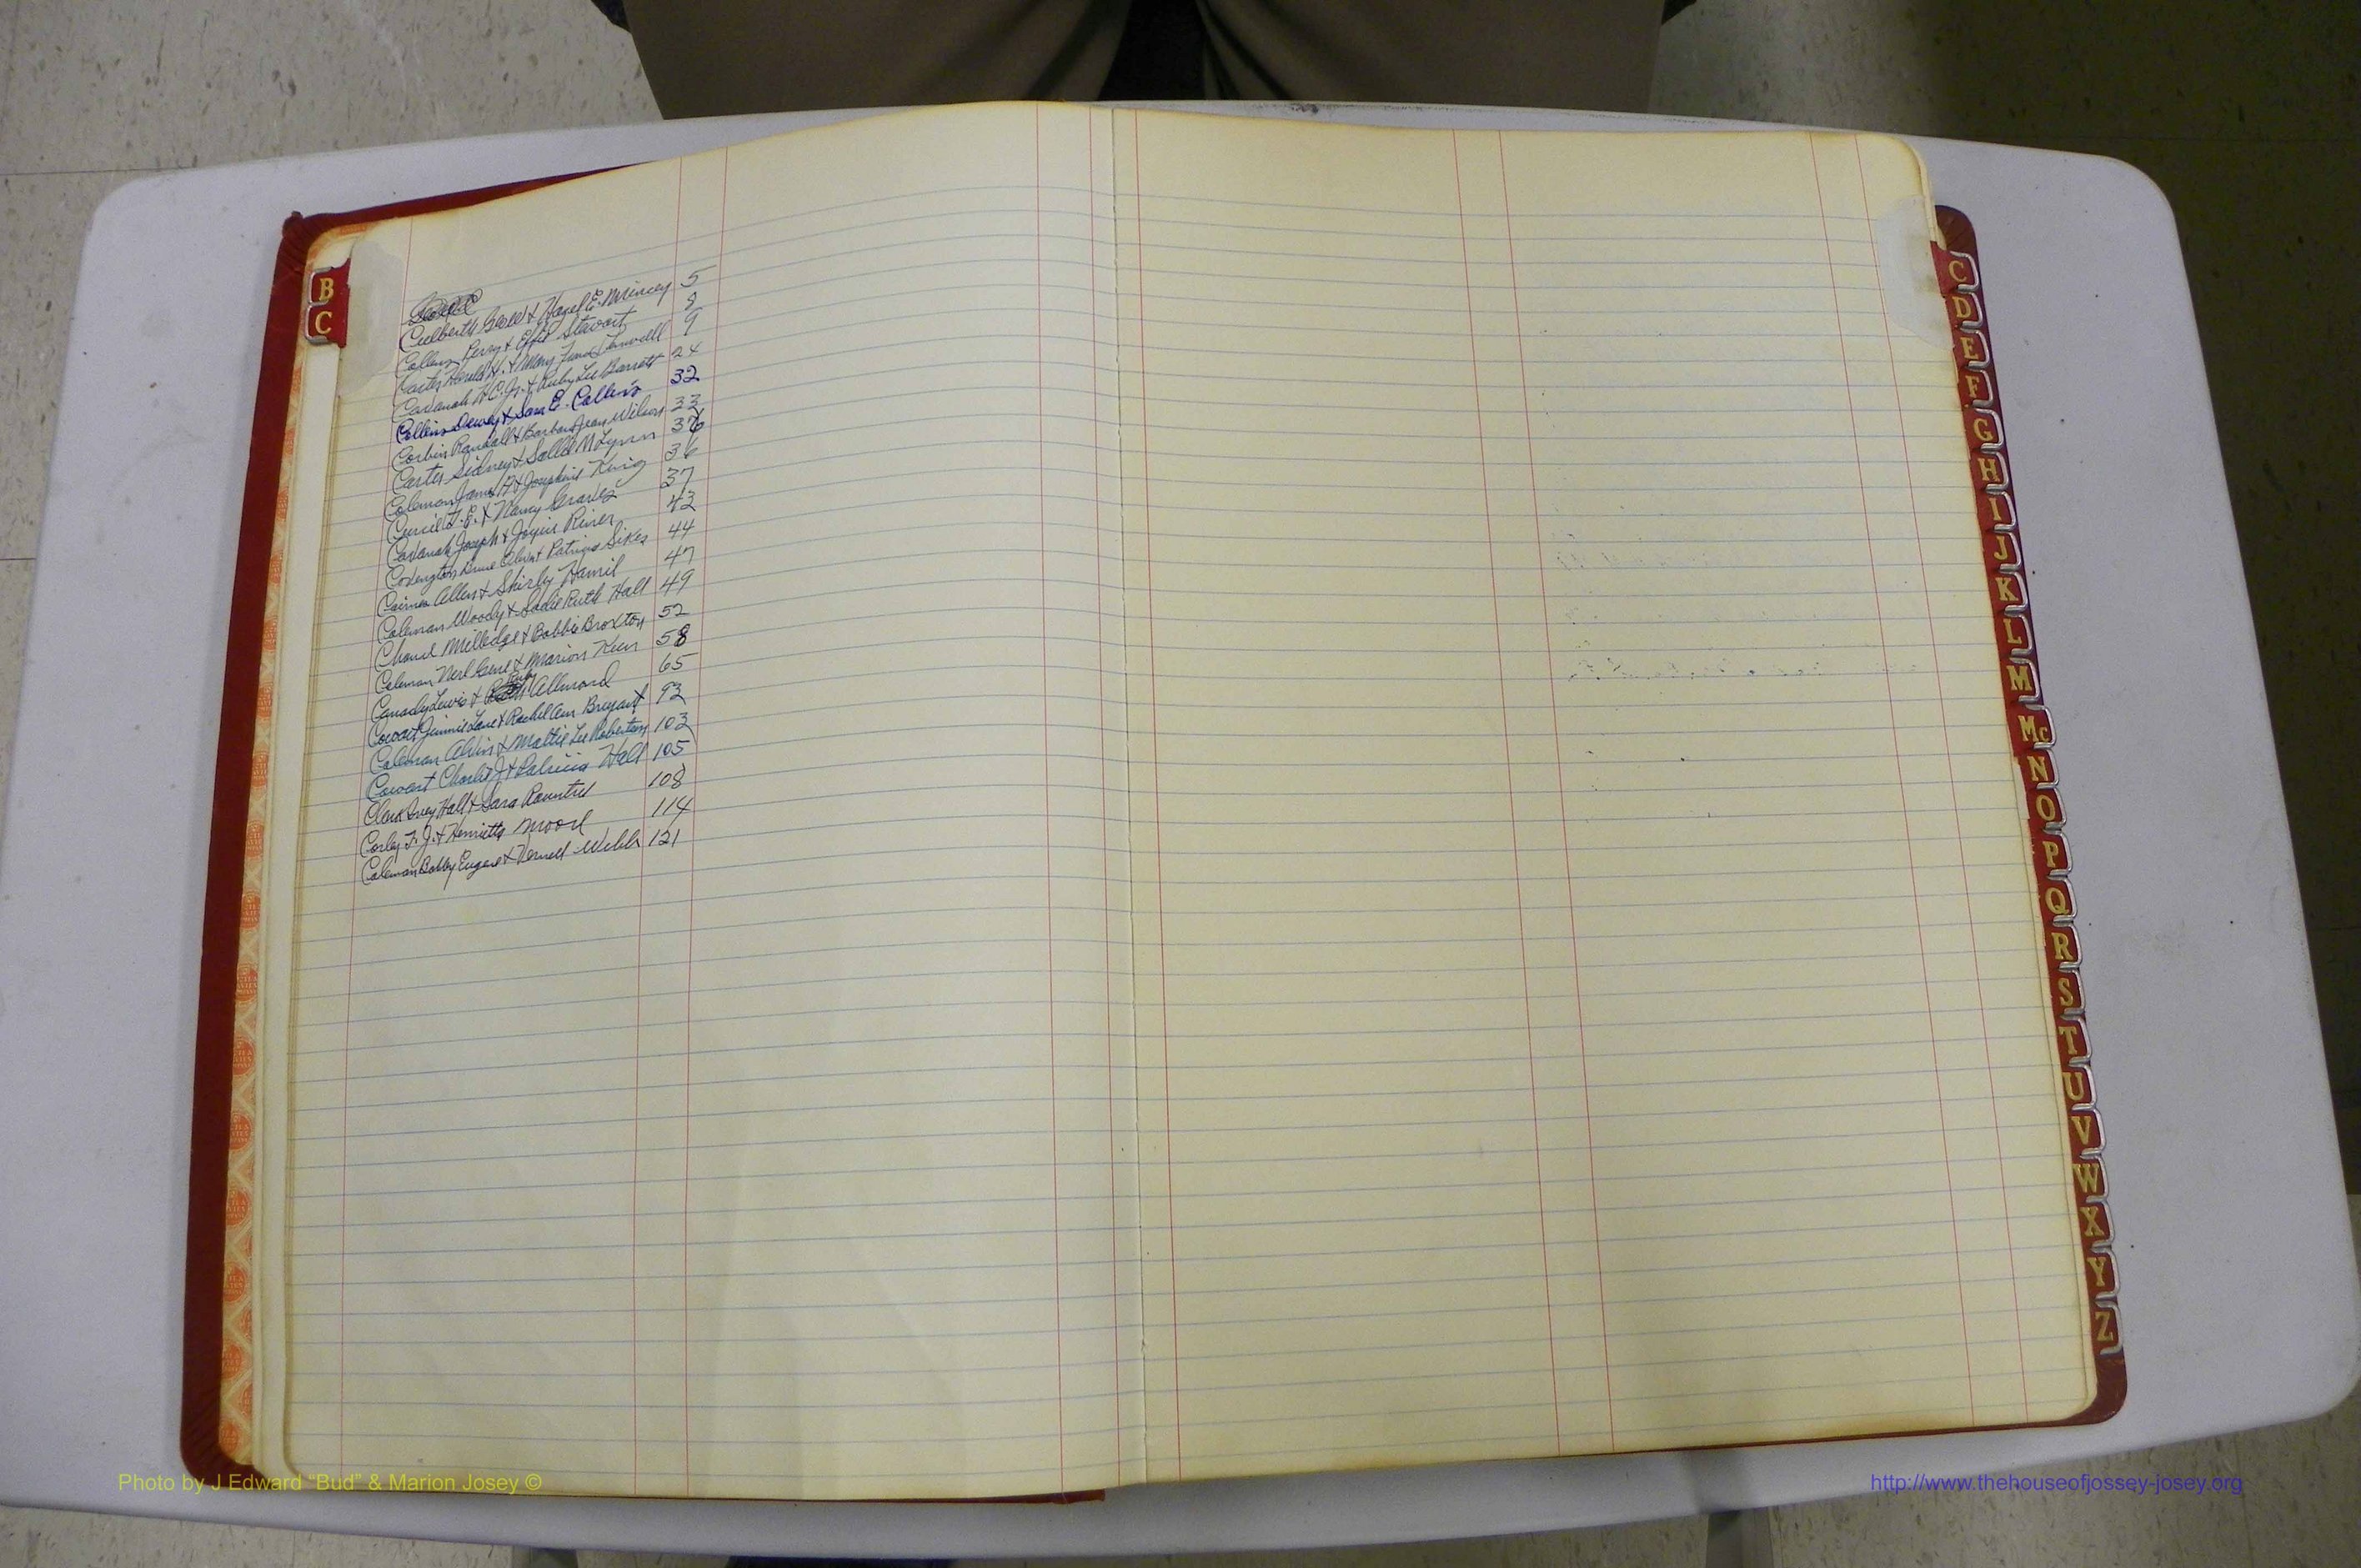 B
C
Culberth & Hazel E. Mincey 5
Collins Perry & Effie Stewart 8
Carter Harold H. & Mary Tennell 9
Cavanah H.C. Jr. & Ruby Lee Barrett 24
Collins Dewey & Sara E. Collins 32
Corbin Randall & Barbara Jean Wilson 33
Carter Sidney & Sallie M Lynn
Coleman James H & Josephine King 36
Currie T. E. & Nancy Graves 37
Cavanah Joseph & Joyce Riner 43
Covington & Patricia Sikes 44
Allen & Shirley Hamil 47
Coleman Woody & Sadie Ruth Hall 49
Milledge & Bobbie Broxton 52
Coleman Neil Gene & Marion Keen 58
Canady Lewis & Ruby Allmond 65
Cowart Jimmie Lane & Rachel Ann Bryant 93
Coleman Alvin & Mattie Lee Robertson 103
Cowart Charlie J & Patricia Hall 105
Clark Ivey Hall & Sara Rountree 108
Corley F. J. & Henrietta Moore 114
Coleman Bobby Eugene & Vernell Webb 121
C
D
E
F
G
H
I
J
K
L
M
Mc
N
O
P
Q
R
S
T
U
V
W
X
Y
Z
Photo by J Edward “Bud” & Marion Josey ©
http://www.thehouseofjossey-josey.org